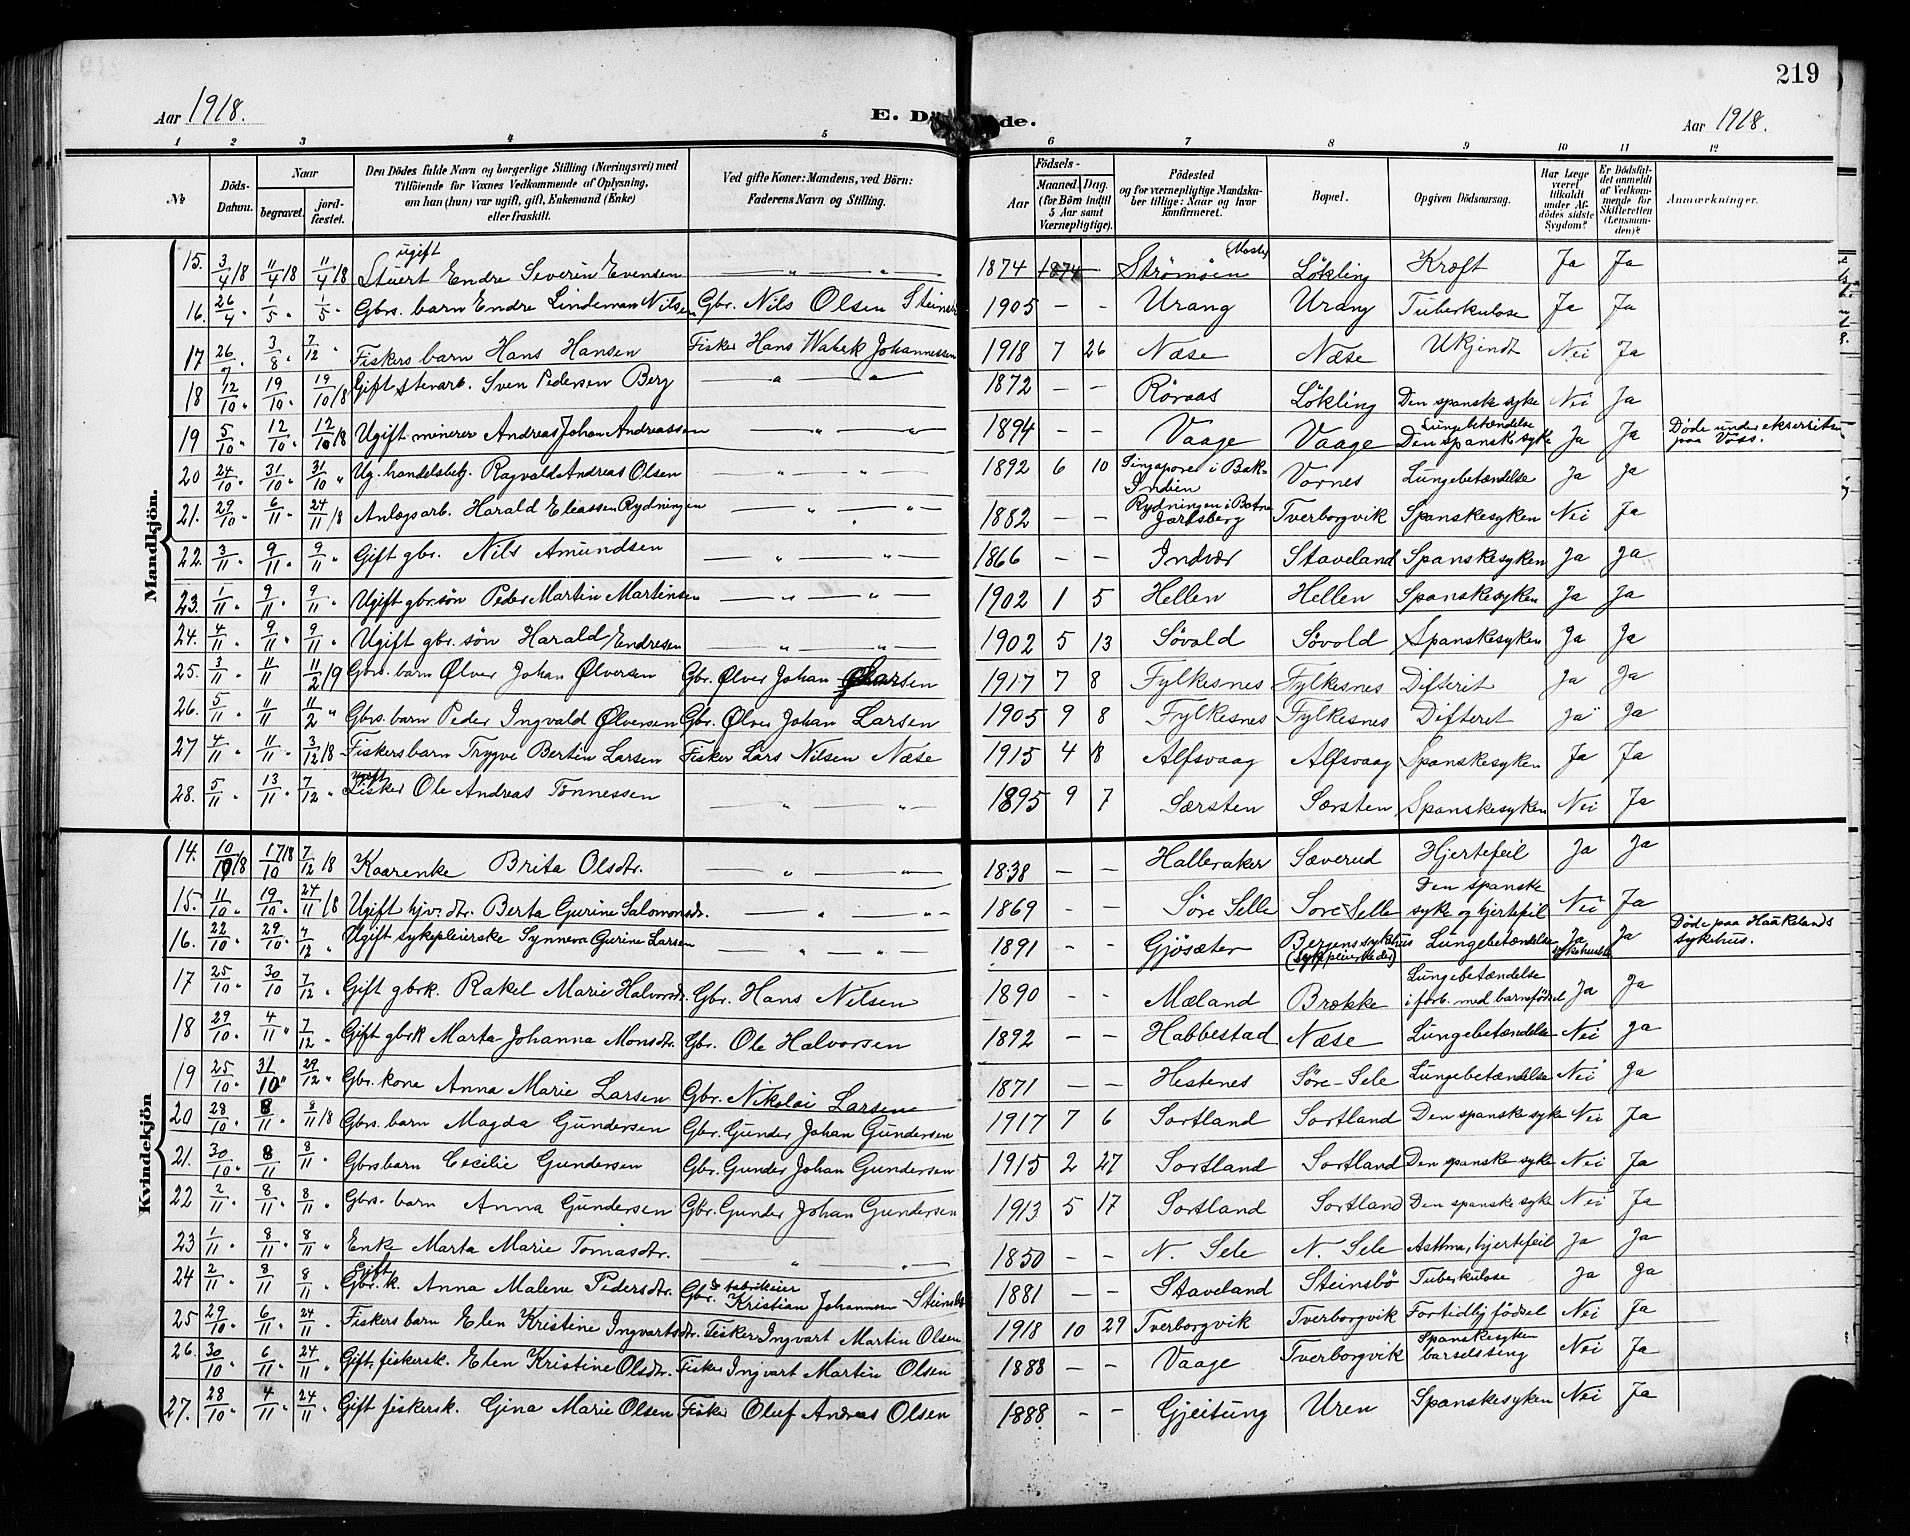 219
Aar 1918.
E. D de.
Aar 1918.
1 2 3 4 5 6 7 8 9 10 11 12
№
Döds-Datum.
Naar
begravet.
jord-fæstet.
Den Dödes fulde Navn og borgerlige Stilling (Næringsvei) med
Tilföiende for Voxnes Vedkommende af Oplysning,
om han (hun) var ugift, gift, Enkemand (Enke)
eller fraskilt.
Ved gifte Koner: Mandens, ved Börn:
Faderens Navn og Stilling.
Födsels-
Aar
Maaned. Dag.
(for Börn indtil
5 Aar samt
Værnepligtige).
Födested
og for værnepligtige Mandska-
ber tillige: Naar og hvor
konfirmeret.
Bopæl.
Opgiven Dödsaarsag.
Har Læge
været
tilkaldt
under Af-
dödes sidste
Sygdom?
Er Dödsfal-
det anmeldt
af Vedkom-
mende for
Skifteretten
(Lensman-
den)?
Anmærkninger.
Mandkjön.
15. 3/4 18 11/4 18 11/4 18 ugift Stuert Endre Severin Evensen — " — " — 1874 — Strömöen (Moster) Lökling Kræft Ja Ja
16. 26/4 " 1/5 " 1/5 " Gbrs. barn Endre Lindeman Nilsen Gbr. Nils Olsen 1905 – – Urang Urang Tuberkulose Ja Ja
17 26/7 " 3/8 " 7/12 " Fiskers barn Hans Hansen Fisker Hans Johannessen 1918 7 26 Næse Næse Ukjendt Nei Ja
18 12/10 " 19/10 " 19/10 18 Gift stenarb. Sven Pedersen Berg — " — " — 1872 – – Röraas Lökling Den spanske syke Nei Ja
19 5/10 " 12/10 " 12/10 18 Ugift minerer Andreas Johan Andreassen — " — " — 1894 – – Vaage Vaage Lungebetændelse Den spanske syke Ja Ja Döde under eksersiten paa Voss.
20 24/10 " 31/10 " 31/10 " Ug. handelsbetj. Ragvald Andreas Olsen — " — " — 1892 6 10 Singapore i Bak-Indien Vornes Lungebetændelse Ja Ja
21. 29/10 " 6/11 " 24/11 18 Anlægsarb. Harald Eliassen Rydningen — " — " — 1882 – – Rydningen i Botne Jarlsberg Tverborgvik Spanskesyken Nei Ja
22. 3/11 " 9/11 " 9/11 " Gift gbr. Nils Amundsen — " — " — 1866 – – Indvær Staveland Spanskesyken Ja Ja
23. 1/11 " 9/11 " 9/11 " Ugift gbr.sön Peder Martin Martinsen — " — " — 1902 1 5 Hellen Hellen Spanskesyken Ja Ja
24. 4/11 " 9/11 " 9/11 " Ugift gbr. sön Harald Endresen — " — " — 1902 5 13 Sövold Sövold Spanskesyken Ja Ja
25. 3/11 " 11/11 11/2 19 Gbrs. barn Ølver Johan Ølversen Gbr. Ølver Johan Larsen 1917 7 8 Fylkesnes Fylkesnes Difterit Ja Ja
26. 5/11 " 11/11 11/2 " Gbrs. barn Peder Ingvald Ølversen Gbr. Ølver Johan Larsen 1905 9 8 Fylkesnes Fylkesnes Difteret Ja Ja
27 4/11 " 11/11 " 3/12 18 Fiskers barn Trygve Bertin Larsen Fisker Lars Nilsen Næse 1915 4 18 Alfsvaag Alfsvaag Spanskesyken Ja Ja
28. 5/11 " 13/11 " 7/12 " ugift Fisker Ole Andreas Tönnessen — " — " — 1895 9 7 Særsten Særsten Spanskesyken Nei Ja
Kvindekjön
14. 10/10 18 17/10 18 7/12 18 Kaarenke Brita Olsdtr. — " — " — 1838 – – Halleraker Sæverud Hjertefeil Ja Ja
15. 11/10 " 19/10 " 24/11 18 Ugift hjv. dtr. Berta Gurine Salomonsdtr. — " — " — 1869 – – Söre Selle Söre Selle Den spanske syke og hjertefeil Nei Ja
16. 22/10 " 29/10 " 7/12 " Ugift sykepleierske Synneva Gurine Larsen — " — " — 1891 – – Gjösæter Bergens sykehus (sykepleierske der) Lungebetændelse Ja Ja Döde paa Haukelands sykehus.
17 25/10 " 30/10 7/12 " Gift gbrk. Rakel Marie Halvorsdtr. Gbr. Hans Nilsen 1890 – – Mæland Brække Lungebetændelse i forb. med barnsfödsel Ja Ja
18 29/10 " 4/11 " 7/12 " Gift gbrk Marta Johanna Monsdtr. Gbr. Ole Halvorsen 1892 – – Habbestad Næse Lungebetændelse Nei Ja
19 25/10 " 31/10 " 29/12 " Gbr. kone Anna Marie Larsen Gbr. Nikolai Larsen 1871 – – Hestenes Söre-Sele Lungebetændelse Nei Ja
20 28/10 " 8/11 " 8/11 18 Gbrs. barn Magda Gundersen Gbr. Gunder Johan Gundersen 1917 7 6 Sortland Sortland Den spanske syke Nei Ja
21. 30/10 " 8/11 8/11 " Gbrs barn Cecilie Gundersen Gbr. Gunder Johan Gundersen 1915 2 27 Sortland Sortland Den spanske syke Nei Ja
22 2/11 " 8/11 " 8/11 " Gbrs. barn Anna Gundersen Gbr. Gunder Johan Gundersen 1913 5 17 Sortland Sortland Den spanske syke Nei Ja
23 1/11 " 8/11 " 8/11 " Enke Marta Marie Tomasdtr. — " — " — 1850 – – N. Sele N. Sele Asthma, hjertefeil Ja Ja
24 2/11 " 8/11 " 8/11 " Gift Gbr. k. Anna Malene Pedersdtr. Gbr. & fabrikeier Kristian Johannesen Steinsbö 1881 – – Staveland Steinsbö Tuberkulose Ja Ja
25 29/10 " 6/11 " 24/11 " Fiskers barn Elen Kristine Ingvartsdtr. Fisker Ingvart Martin Olsen 1918 10 29 Tverborgvik Tverborgvik Fortidlig födsel Nei Ja
26. 30/10 " 6/11 " 24/11 " Gift, fiskersk. Elen Kristine Olsdtr. Fisker Ingvart Martin Olsen 1888 – – Vaage Tverborgvik Spanskesyken barselseng Nei Ja
27. 28/10 " 4/11 " 24/11 " Gift fiskersk. Gina Marie Olsen Fisker Oluf Andreas Olsen 1888. – – Gjeitung Uren Spanskesyken Nei Ja